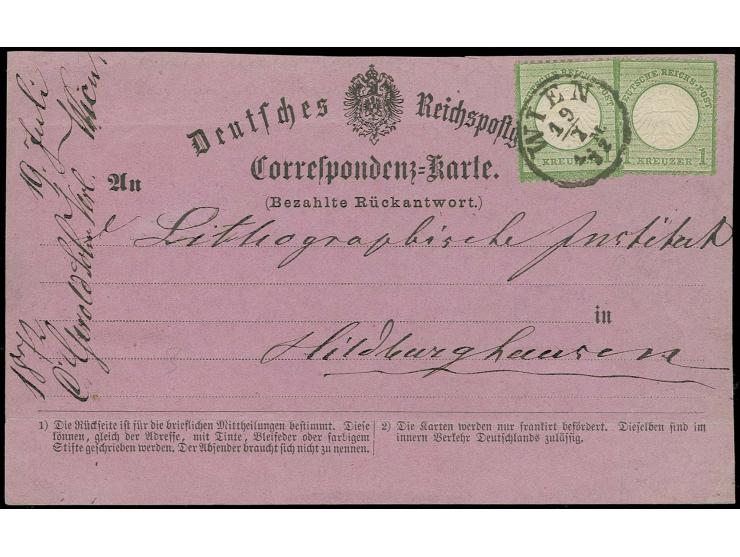 Deutsches Reichspostg
Correspondenz-Karte.
(Bezahlte Rückantwort.)
DEUTSCHE REICHS-POST
KREUZER
DEUTSCHE REICHS-POST
1 KREUZER 1
WIEN
19/7
72
An
d Lithographische Institut
in
Hildburghausen
1) Die Rückseite ist für die brieflichen Mittheilungen bestimmt. Diese
können, gleich der Adresse, mit Tinte, Bleifeder oder farbigem
Stifte geschrieben werden. Der Absender braucht sich nicht zu nennen.
2) Die Karten werden nur frankirt befördert. Dieselben sind im
innern Verkehr Deutschlands zulässig.
1872 19 Juli
Gerold Wien